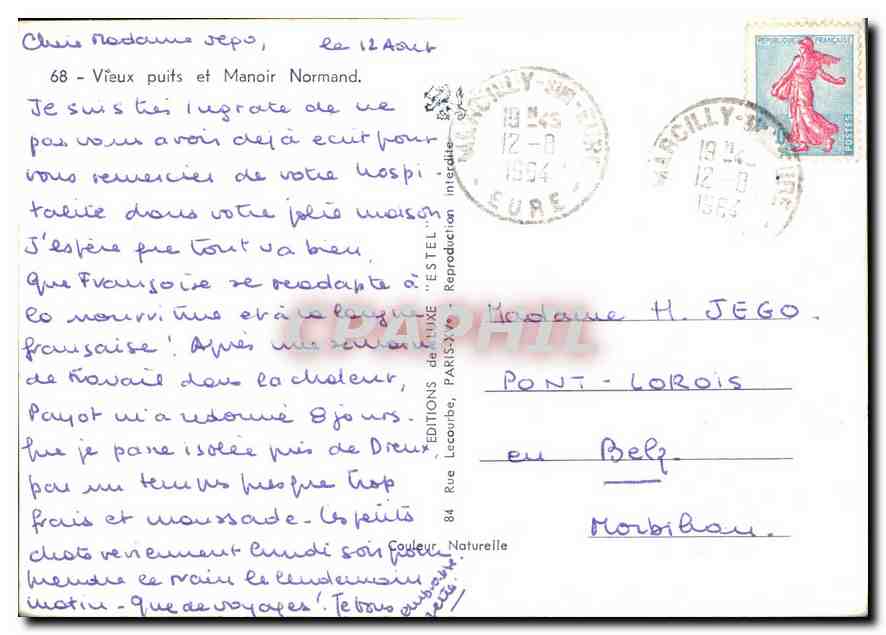 Chère Madame Jego, le 12 Août
68 - Vieux puits et Manoir Normand.
Je suis très ingrate de ne
pas vous avoir déjà écrit pour
vous remercier de votre hospi-
talité dans votre jolie maison
J'espère que tout va bien,
que Françoise se readapte à
la nourriture et à la langue
française! Après une semaine
de travail dans la chaleur,
Payot m'a redonné 8 jours.
que je passe isolée près de Dreux,
par un temps presque trop
frais et maussade - les petits
chats reviennent lundi soir pour
prendre le train le lendemain
matin - que de voyages! Je vous
embrasse
EDITIONS de LUXE "ESTEL"
84 Rue Lecourbe, PARIS-XVe - Reproduction interdite
Couleur Naturelle
MARCILLY-SUR-EURE
19H45
12-8
1964
EURE
MARCILLY-SUR-EURE
19H45
12-8
1964
REPUBLIQUE FRANÇAISE
POSTES
Madame H. JEGO.
PONT-LOROIS
en Belz
Morbihan.
CPAPHIL